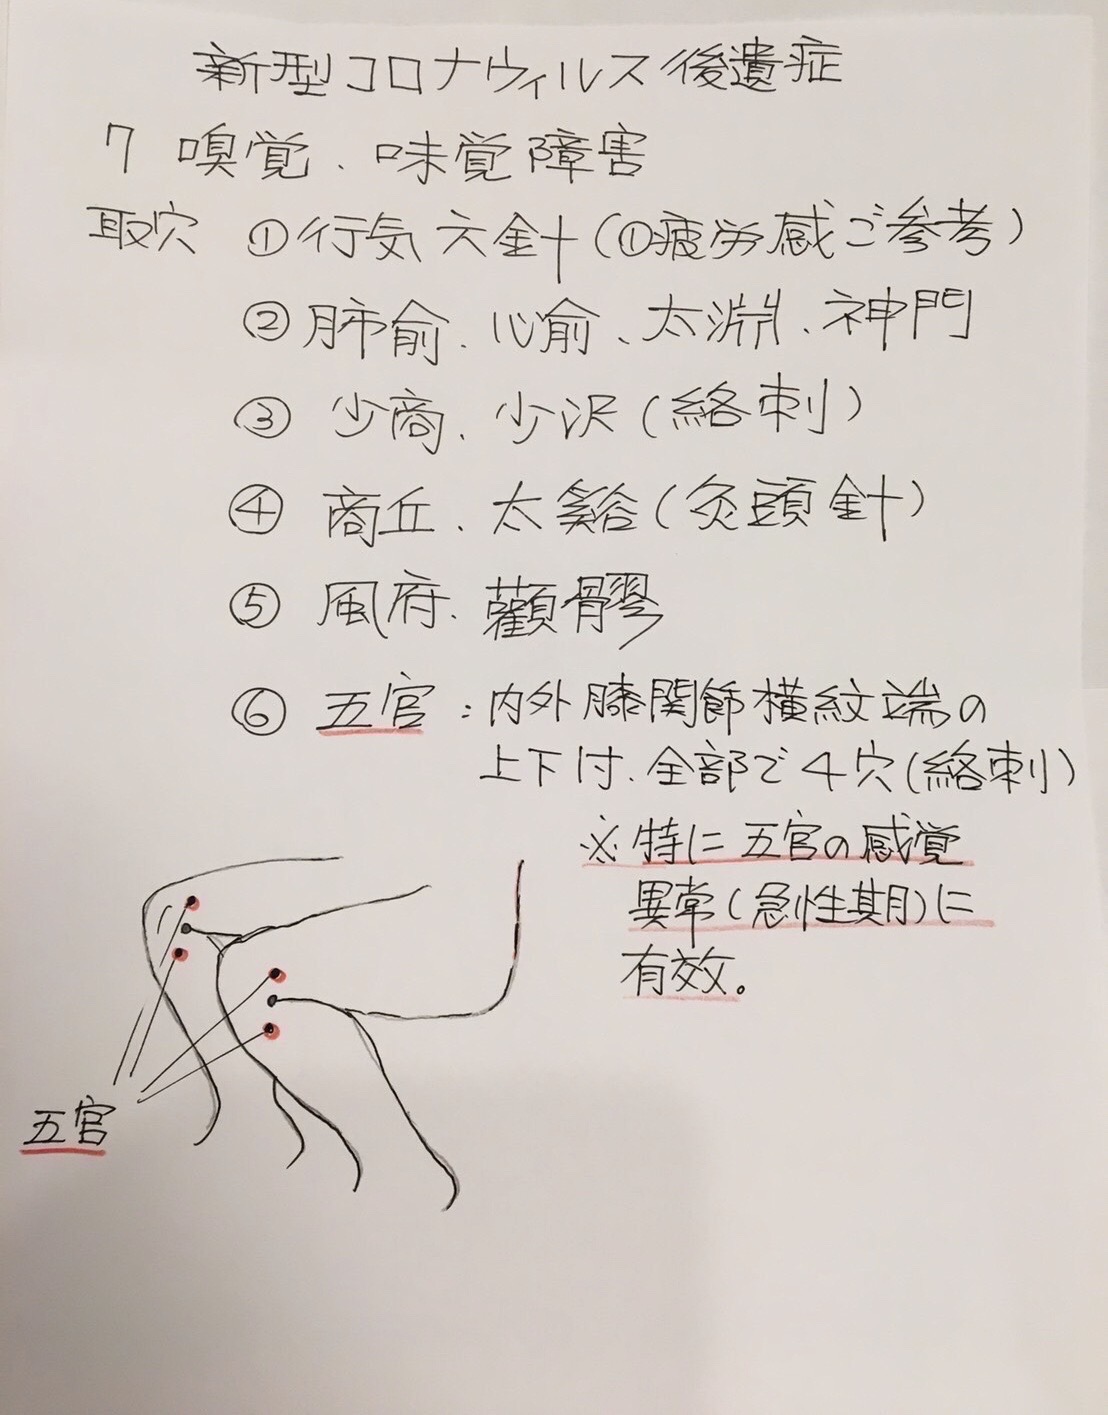 新型コロナウィルス後遺症
7 嗅覚、味覚障害
取穴 ①行気六針(①疲労感ご参考)
②肺俞、心俞、太淵、神門
③少商、少沢(絡刺)
④商丘、太谿(灸頭針)
⑤風府、顴髎
⑥五官:内外膝関節横紋端の
上下付、全部で4穴(絡刺)
※特に五官の感覚
異常(急性期)に
有効。
五官